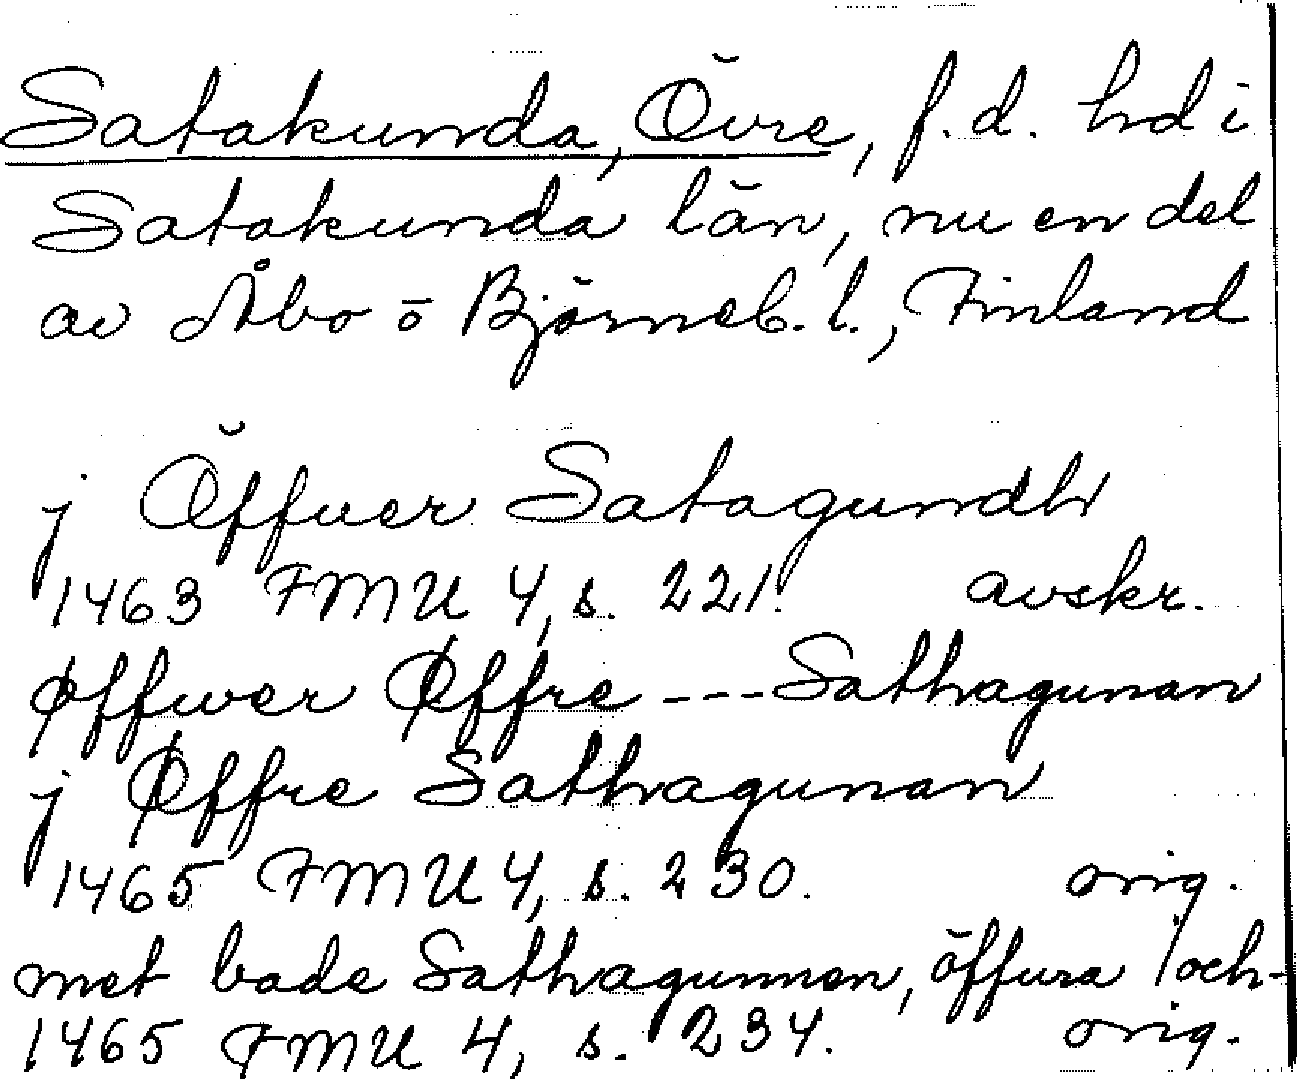 Satakunda, Övre, f.d. hd i
Satakunda län, nu en del
av Åbo o Björneb. l., Finland
j Öffuer Satagundh
1463 FMU 4, s. 221. avskr.
øffwer Øffre --- Sathagunan
j Øffre Sathagunan
1465 FMU 4, s. 230. orig.
met bade Sathagunnen, öffura / och-
1465 FMU 4, s. 234. orig.